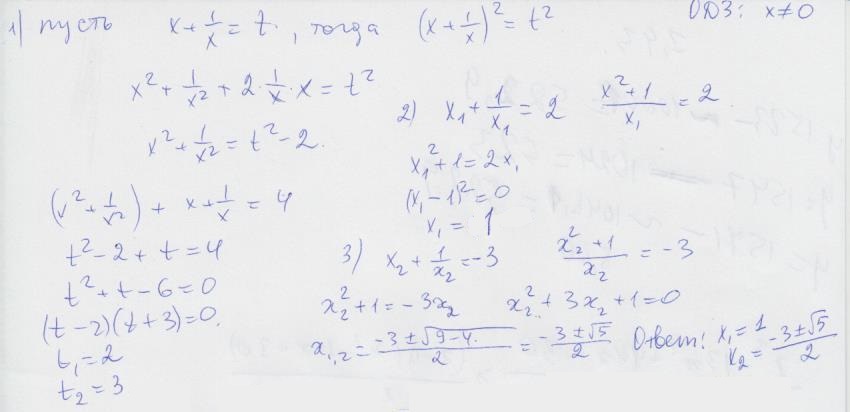 1) пусть x + 1/x = t, тогда (x + 1/x)² = t² ОДЗ: x ≠ 0
x² + 1/x² + 2·1/x·x = t²
x² + 1/x² = t² - 2.
(x² + 1/x²) + x + 1/x = 4
t² - 2 + t = 4
t² + t - 6 = 0
(t - 2)(t + 3) = 0.
t₁ = 2
t₂ = 3
2) x₁ + 1/x₁ = 2 (x² + 1)/x₁ = 2
x₁² + 1 = 2x₁
(x₁ - 1)² = 0
x₁ = 1
3) x₂ + 1/x₂ = -3 (x₂² + 1)/x₂ = -3
x₂² + 1 = -3x₂ x₂² + 3x₂ + 1 = 0
x₁,₂ = (-3 ± √(9 - 4))/2 = (-3 ± √5)/2 Ответ: x₁ = 1
x₂ = (-3 ± √5)/2